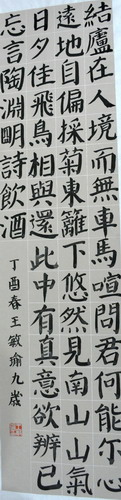 結廬在人境而無車馬喧問君何能尔心
遠地自偏採菊東籬下悠然見南山山氣
日夕佳飛鳥相與還此中有真意欲辨已
忘言陶淵明詩飲酒
丁酉春王毅瑜九歲